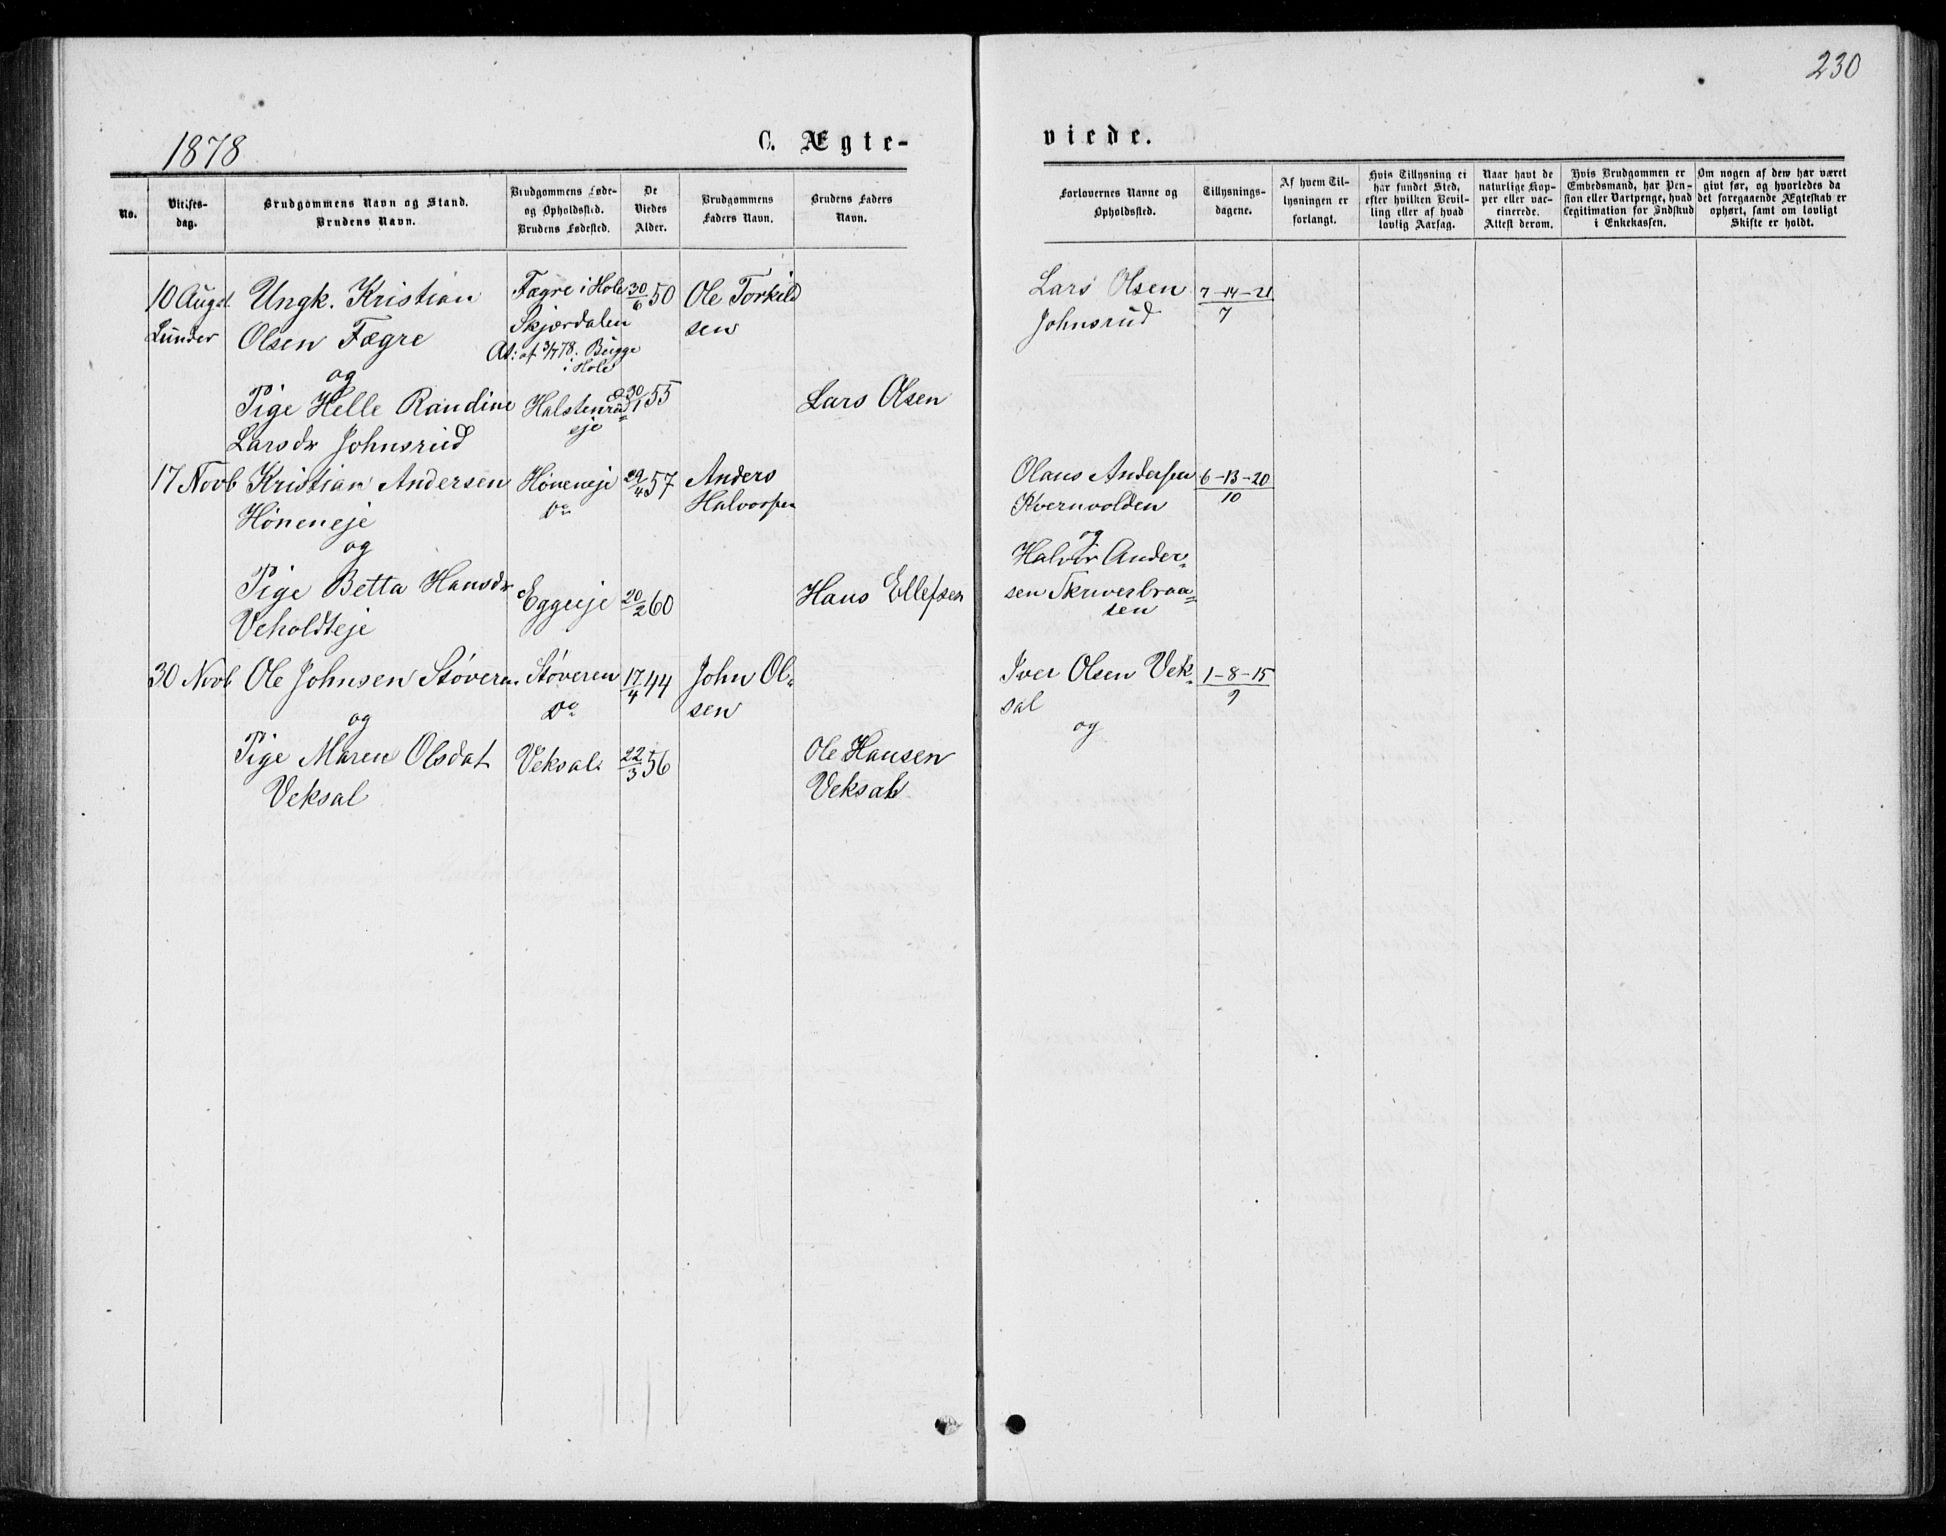 230
1878
C. Ægte-
viede.
No.
Vielses-
dag.
Brudgommens Navn og Stand.
Brudens Navn.
Brudgommens Føde-
og Opholdssted.
Brudens Fødested.
De
Viedes
Alder.
Brudgommens
Faders Navn.
Brudens Faders
Navn.
Forlovernes Navne og
Opholdssted.
Tillysnings-
dagene.
Af hvem Til-
lysningen er
forlangt.
Hvis Tillysning ei
har fundet Sted,
efter hvilken Bevil-
ling eller af hvad
lovlig Aarsag.
Naar havt de
naturlige Kop-
per eller vac-
cinerede.
Attest derom.
Hvis Brudgommen er
Embedsmand, har Pen-
sion eller Vartpenge, hvad
Legitimation for Indskud
i Enkekassen.
Om nogen af dem har været
givt før, og hvorledes da
det foregaaende Ægteskab er
ophørt, samt om lovligt
Skifte er holdt.
10 Augst
Lunder
Ungk. Kristian
Olsen Fægre
og
Pige Helle Randine
Larsdr Johnsrud
Fægre i Hole
Skjærdalen
At: af 3/7 78. Bugge
i Hole
Halstenrud
eje
30/6 50
30/1 55
Ole Torkild
sen
Lars Olsen
Lars Olsen
Johnsrud
7-14-21
7
17 Novb
Kristian Andersen
Høneneje
og
Pige Betta Hansdr
Veholdteje
Høneneje
Do
Eggeeje
29/4 57
20/2 60
Anders
Halvorsen
Hans Ellefsen
Olaus Andersen
Kvernvolden
og
Halvor Ander-
sen Skriverbraa-
ten
6-13-20
10
30 Novb
Ole Johnsen Støveren
og
Pige Maren Olsdat
Veksal
Støveren
Do
Veksal
17/4 44
22/3 56
John Ol-
sen
Ole Hansen
Veksal
Iver Olsen Vek-
sal
og
1-8-15
9